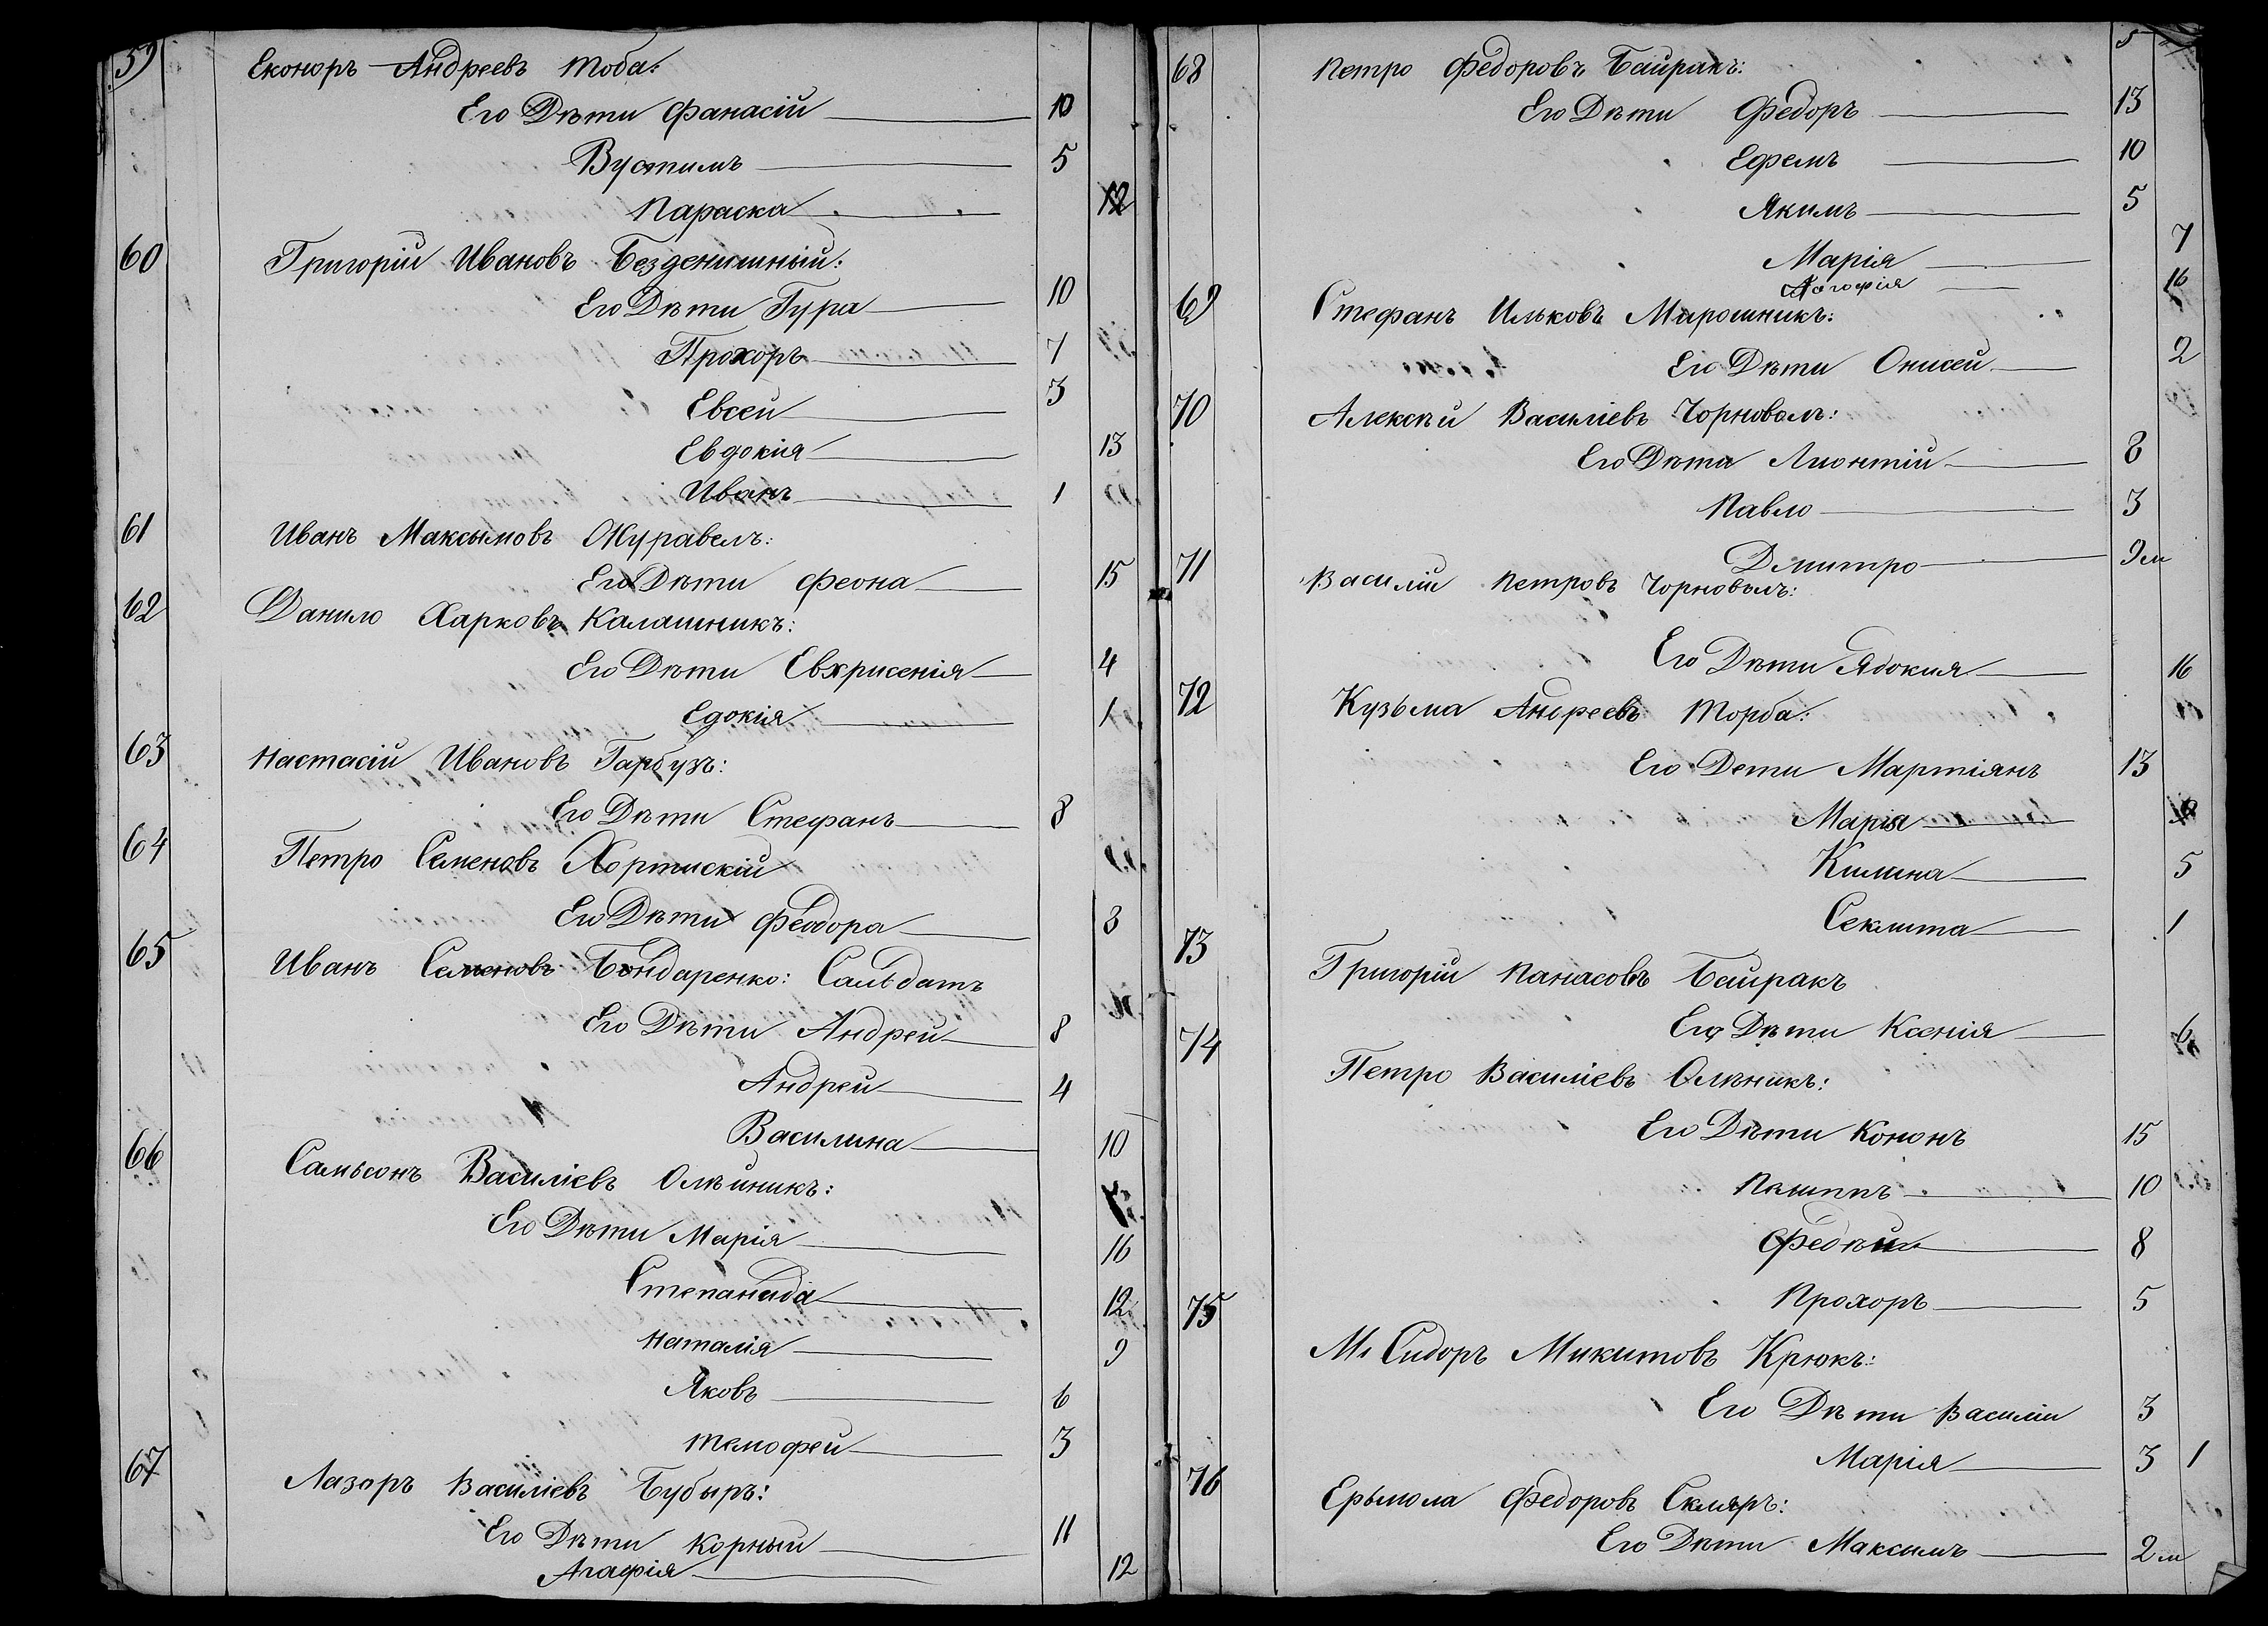 59 Еконоръ Андреевъ Тоба:
Его Дѣти Фанасій 10
Вустимъ 5
Параска 12
60 Григорій Ивановъ Безденишный:
Его Дѣти Гура 10
Прохоръ 7
Евсей 3
Евдокія 13
Иванъ 1
61 Иванъ Максымовъ Журавелъ:
Его Дѣти Феона 15
62 Данило Харковъ Калашникъ:
Его Дѣти Евхрисенія 4
Едокія 1
63 Настасій Ивановъ Гарбузъ:
Его Дѣти Стефанъ 8
64 Петро Семеновъ Хортискій
Его Дѣти Феодора 3
65 Иванъ Семеновъ Бондаренко: Сальдатъ
Его Дѣти Андрей 8
Андрей 4
Василина 10
66 Самьсонъ Василіевъ Олѣйникъ:
Его Дѣти Марія 16
Степанида 12
Наталія 9
Яковъ 6
Темофей 3
67 Лазоръ Василіевъ Бубыръ:
Его Дѣти Корный 11
Агафія 12
5
68 Петро Федоровъ Байракъ:
Его Дѣти Федоръ 13
Ефемъ 10
Якимъ 5
Марія 7
16
69 Стефанъ Ильковъ Мирошникъ:
Его Дѣти Онисей 2
70 Алексѣй Василіевъ Чорноволъ:
Его Дѣти Лионтій 8
Павло 3
Дмитро 9 м
71 Василій Петровъ Чорноволъ:
Его Дѣти Ядокия 16
72 Кузьма Андреевъ Торба:
Его Дети Мартіянъ 13
Марія
Килина 5
Секлита 1
73 Григорій Панасовъ Байракъ
Его Дѣти Ксенія 6
74 Петро Василіевъ Олѣникъ:
Его Дѣти Кононъ 15
10
Федѣй 8
Прохоръ 5
75 Сидоръ Микитовъ Крюкъ:
Его Дѣти Василій 3
Марія 3 1
76 Ерьмола Федоровъ Скляръ:
Его Дѣти Максимъ 2 м